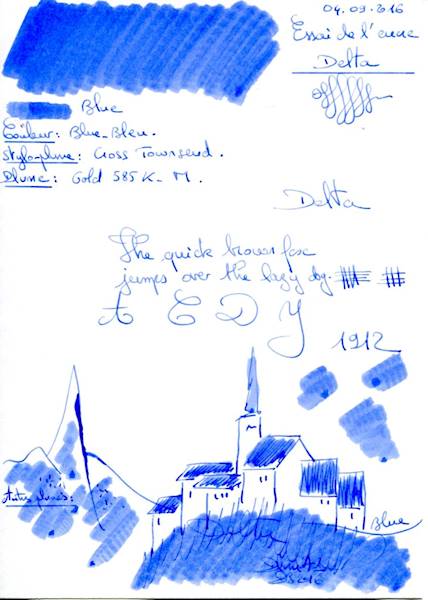 04.09.2016
Essai de l'encre
Delta
Blue
Couleur: Blue-Bleu.
Stylo-plume: Cross Townsend.
Plume: Gold 585 K - M.
Delta
The quick brown fox
jumps over the lazy dog.
A C D Y
1912
Autres plumes:
Blue
Delta
2016